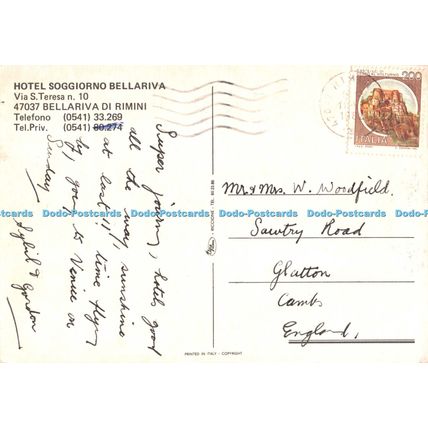 HOTEL SOGGIORNO BELLARIVA
Via S.Teresa n. 10
47037 BELLARIVA DI RIMINI
Telefono (0541) 33.269
Tel.Priv. (0541) 80.274
Super journey, hotel good
all the way, sunshine
at last!! time flying
by, going to Venice on
Sunday
Sybil & Gordon
200
ITALIA
Mr & Mrs. W. Woodfield.
Sawtry Road
Glatton
Cambs
England,
PRINTED IN ITALY - COPYRIGHT
Dodo-Postcards Dodo-Postcards Dodo-Postcards Dodo-Postcards Dodo-Postcards